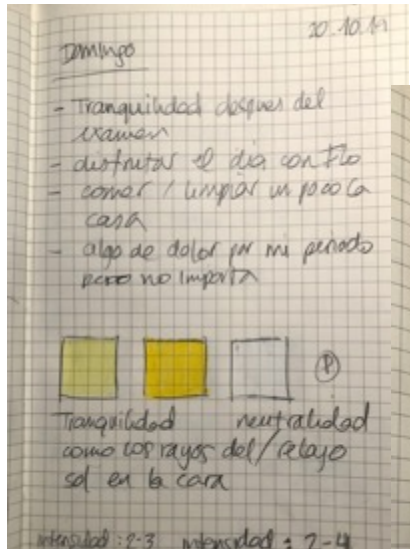 20.10.19
Domingo
- Tranquilidad despues del
examen
- disfrutar el dia con Flo
- comer / limpiar un poco la
casa
- algo de dolor por mi periodo
pero no importa
P
Tranquilidad neutralidad
como los rayos del / relajo
sol en la cara
intensidad : 2-3 intensidad : 2-4